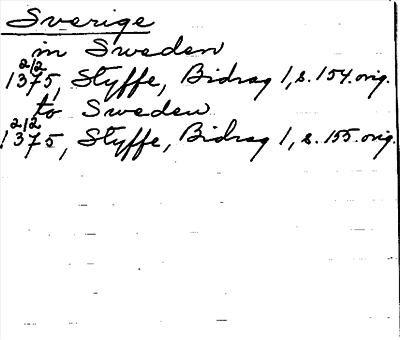 Sverige
in Sweden
1375 2/2, Styffe, Bidrag 1, s. 154. orig.
to Sweden
1375 2/2, Styffe, Bidrag 1, s. 155. orig.